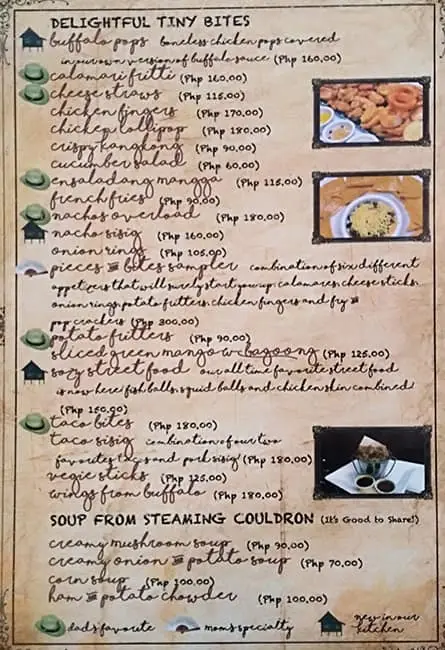 DELIGHTFUL TINY BITES
buffalo pops boneless chicken pops covered
in our own version of buffalo sauce (Php 160.00)
calamari fritti (Php 160.00)
cheese straws (Php 115.00)
chicken fingers (Php 170.00)
chicken lollipop (Php 180.00)
crispy kangkong (Php 90.00)
cucumber salad (Php 60.00)
ensaladang mangga (Php 115.00)
french fries (Php 90.00)
nachos overload (Php 180.00)
nacho sisig (Php 160.00)
onion rings (Php 105.00)
pieces & bites sampler combination of six different
appetizers that will surely start you up: calamares, cheese sticks,
onion rings, potato fritters, chicken fingers and fry &
pop crackers (Php 300.00)
potato fritters (Php 90.00)
sliced green mango w/ bagoong (Php 125.00)
sozy street food our all time favorite street food
is now here! fish balls, squid balls and chicken skin combined!
(Php 150.00)
taco bites (Php 180.00)
taco sisig combination of our two
favorites tacos and pork sisig! (Php 180.00)
vegie sticks (Php 125.00)
wings from buffalo (Php 180.00)
SOUP FROM STEAMING COULDRON (It's Good to Share!)
creamy mushroom soup (Php 90.00)
creamy onion & potato soup (Php 70.00)
corn soup (Php 100.00)
ham & potato chowder (Php 100.00)
dad's favorite mom's specialty new in our
kitchen